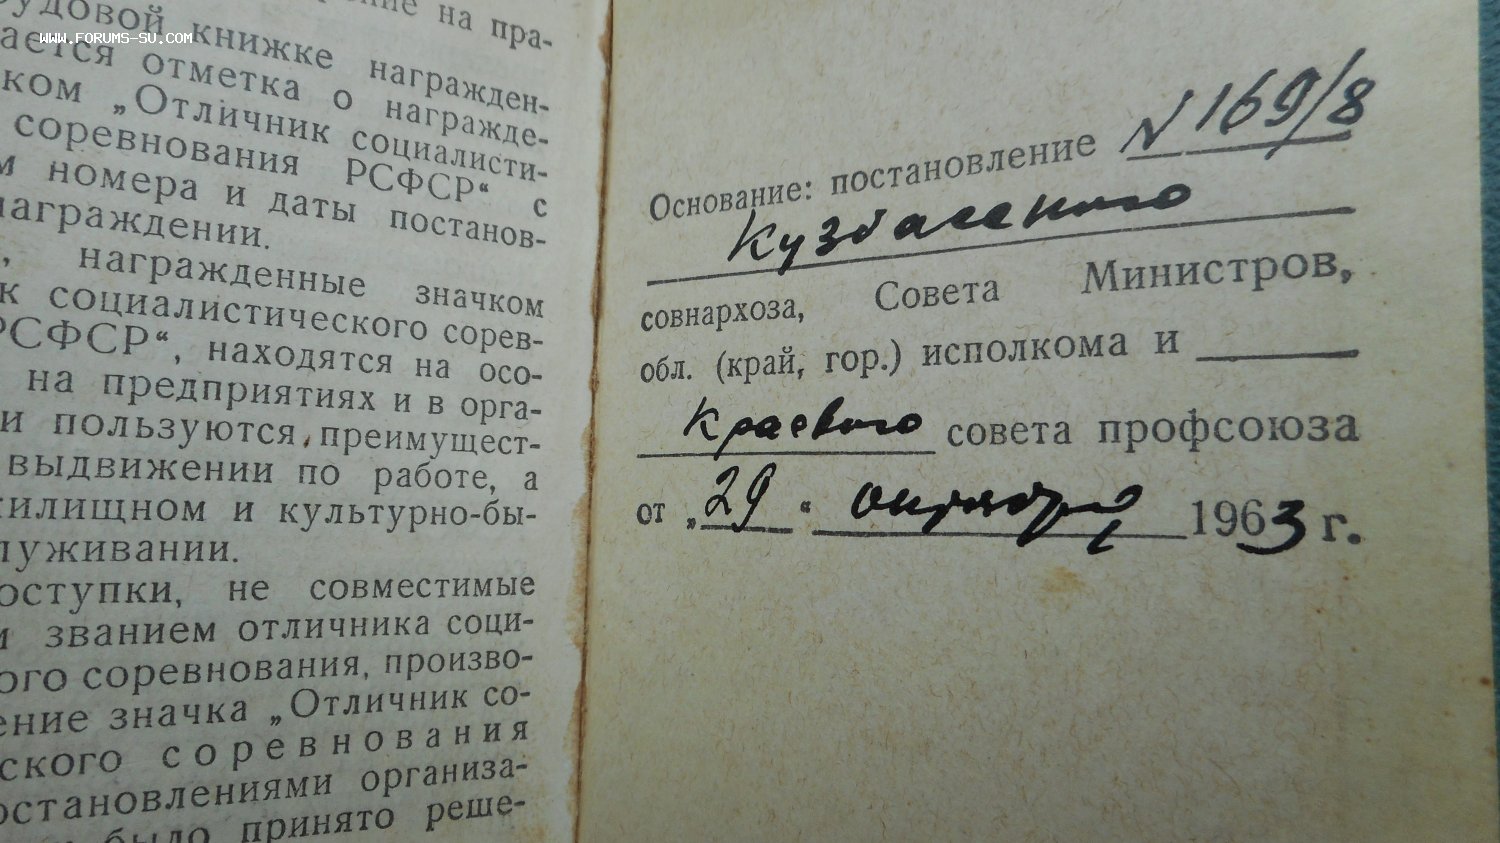 www.forums-su.com
ние на пра-
рудовой книжке награжден-
ается отметка о награжде-
ком „Отличник социалисти-
соревнования РСФСР“ с
м номера и даты постанов-
награждении.
, награжденные значком
к социалистического сорев-
РСФСР“, находятся на осо-
на предприятиях и в орга-
и пользуются, преимущест-
выдвижении по работе, а
жилищном и культурно-бы-
луживании.
оступки, не совместимые
и званием отличника соци-
ого соревнования, произво-
ение значка „Отличник со-
ского соревнования
остановлениями организа-
было принято реше-
Основание: постановление № 169/8
Кузбасского
совнархоза, Совета Министров,
обл. (край, гор.) исполкома и
Краевого совета профсоюза
от „29“ октября 1963 г.